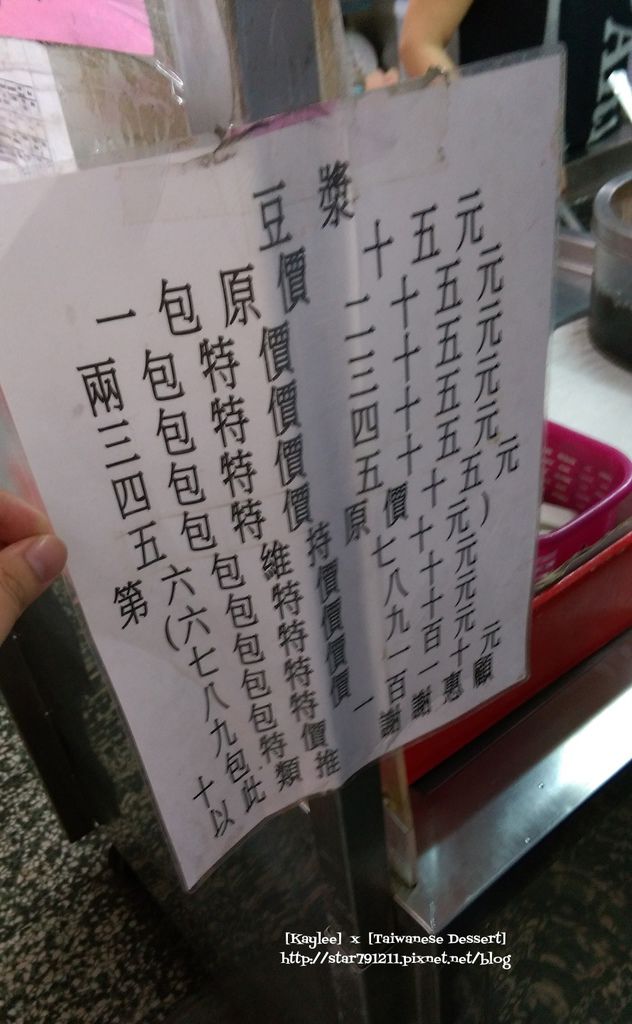 豆漿
一包原價十五元
兩包特價二十五元
三包特價三十五元
四包特價四十五元
五包特價五十五元
第六包維持原價十五元
(六包特價七十元)
七包特價八十元
八包特價九十元
九包特價一百元
十包特價一百一十元
以此類推 謝謝惠顧
[Kaylee] x [Taiwanese Dessert]
http://star791211.pixnet.net/blog